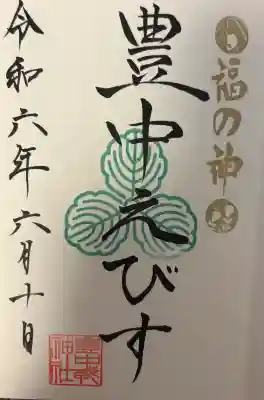 福の神
豊中えびす
令和六年六月十日